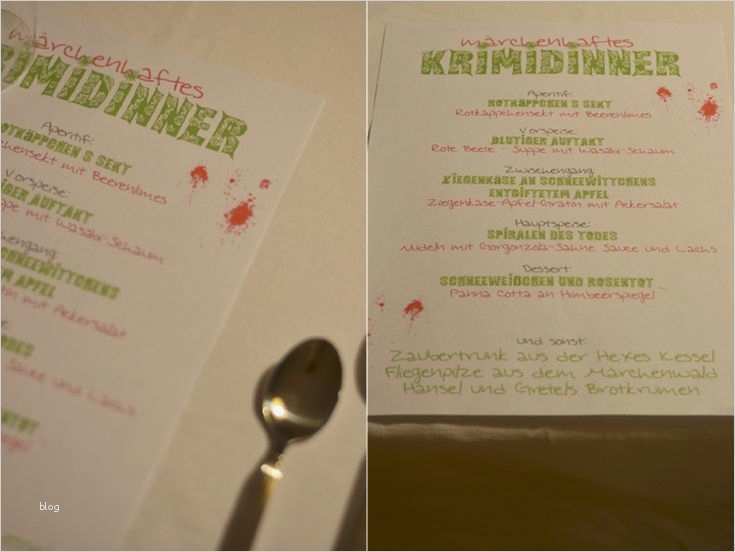 märchenhaftes
RIMIDINNER
Aperitif:
ROTKÄPPCHEN'S SEKT
chensekt mit Beerenlimes
Vorspeise:
TIGER AUFTAKT
ppe mit Wasabi-Schaum
chengang:
SCHNEEWITTCHENS
TEM APFEL
in mit Ackersalat
ODES
Sauce und Lachs
ENTOT
blog
märchenhaftes
KRIMIDINNER
Aperitif:
ROTKÄPPCHEN'S SEKT
Rotkäppchensekt mit Beerenlimes
Vorspeise:
BLUTIGER AUFTAKT
Rote Beete - Suppe mit Wasabi-Schaum
Zwischengang:
ZIEGENKÄSE AN SCHNEEWITTCHENS
ENTGIFTETEM APFEL
Ziegenkäse-Apfel-Gratin mit Ackersalat
Hauptspeise:
SPIRALEN DES TODES
Nudeln mit Gorgonzola-Sahne Sauce und Lachs
Dessert:
SCHNEEWEIßCHEN UND ROSENTOT
Panna Cotta an Himbeerspiegel
und sonst:
Zaubertrunk aus der Hexes Kessel
Fliegenpilze aus dem Märchenwald
Hänsel und Gretels Brotkrumen